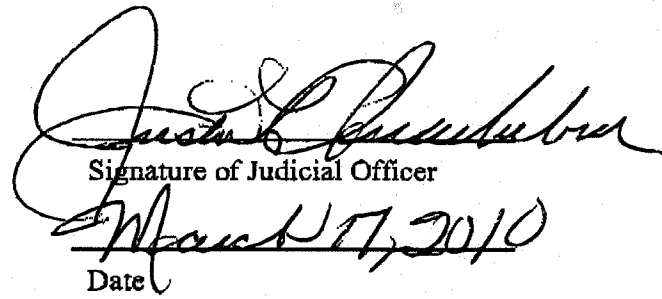 Signature of Judicial Officer
March 17, 2010
Date